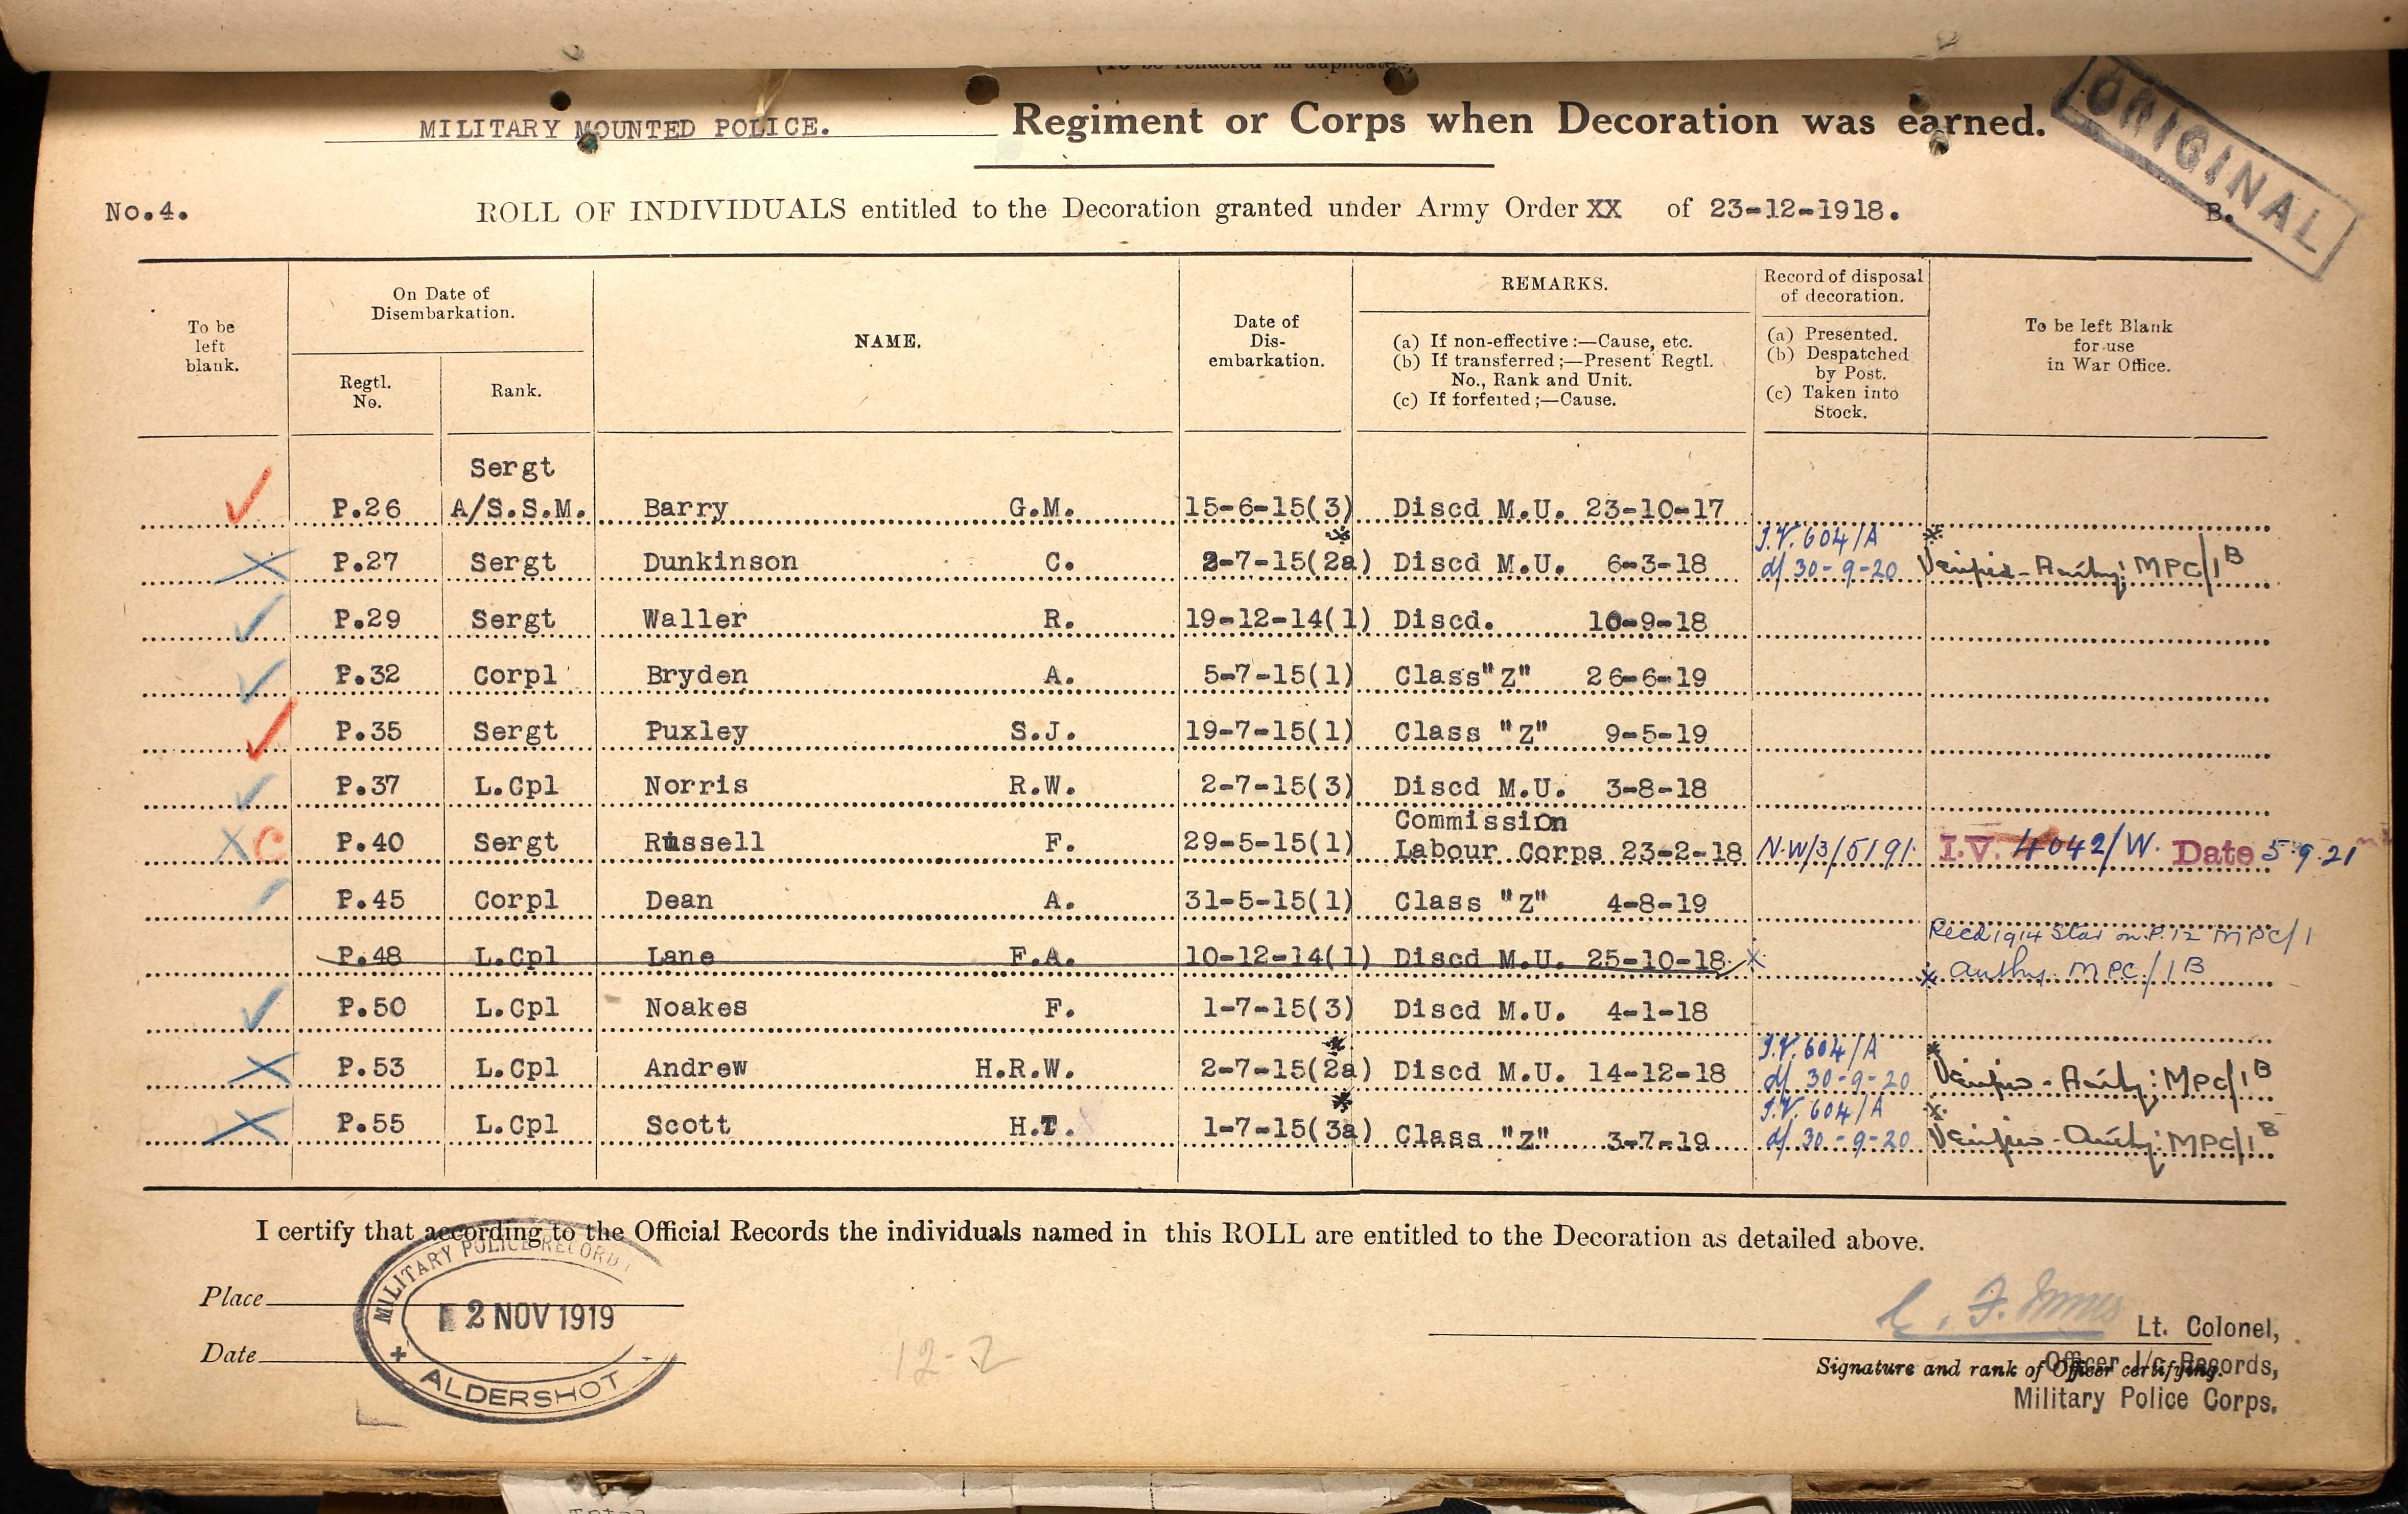 (To be rendered in duplicate.)
MILITARY MOUNTED POLICE. Regiment or Corps when Decoration was earned.
ORIGINAL
No.4. ROLL OF INDIVIDUALS entitled to the Decoration granted under Army Order XX of 23-12-1918. B.
To be left blank.
On Date of Disembarkation.
Regtl. No.
Rank.
NAME.
Date of Dis-embarkation.
REMARKS.
(a) If non-effective :—Cause, etc.
(b) If transferred ;—Present Regtl. No., Rank and Unit.
(c) If forfeited ;—Cause.
Record of disposal of decoration.
(a) Presented.
(b) Despatched by Post.
(c) Taken into Stock.
To be left Blank for use in War Office.
Sergt
P.26 A/S.S.M. Barry G.M. 15-6-15(3) Discd M.U. 23-10-17
I.V. 604/A
P.27 Sergt Dunkinson C. 2-7-15(2a) Discd M.U. 6-3-18 d/ 30-9-20 Verified - Authy: MPC/1B
P.29 Sergt Waller R. 19-12-14(1) Discd. 10-9-18
P.32 Corpl Bryden A. 5-7-15(1) Class"Z" 26-6-19
P.35 Sergt Puxley S.J. 19-7-15(1) Class "Z" 9-5-19
P.37 L.Cpl Norris R.W. 2-7-15(3) Discd M.U. 3-8-18
Commission
XC P.40 Sergt Russell F. 29-5-15(1) Labour Corps 23-2-18 N.W/3/5191. I.V. 4042/W. Date 5.9.21
P.45 Corpl Dean A. 31-5-15(1) Class "Z" 4-8-19
Recd 1914 Star on P.12 MPC/1
P.48 L.Cpl Lane F.A. 10-12-14(1) Discd M.U. 25-10-18 x
x Authy. MPC/1B
P.50 L.Cpl Noakes F. 1-7-15(3) Discd M.U. 4-1-18
I.V. 604/A
P.53 L.Cpl Andrew H.R.W. 2-7-15(2a) Discd M.U. 14-12-18 d/ 30-9-20 Verified - Authy: MPC/1B
I.V. 604/A
P.55 L.Cpl Scott H.T. 1-7-15(3a) Class "Z" 3-7-19 d/ 30-9-20 Verified - Authy: MPC/1B
I certify that according to the Official Records the individuals named in this ROLL are entitled to the Decoration as detailed above.
MILITARY POLICE RECORD
Place
2 NOV 1919
Date
ALDERSHOT
12-2
Lt. Colonel,
Signature and rank of Officer certifying.
Officer I/c Records,
Military Police Corps.